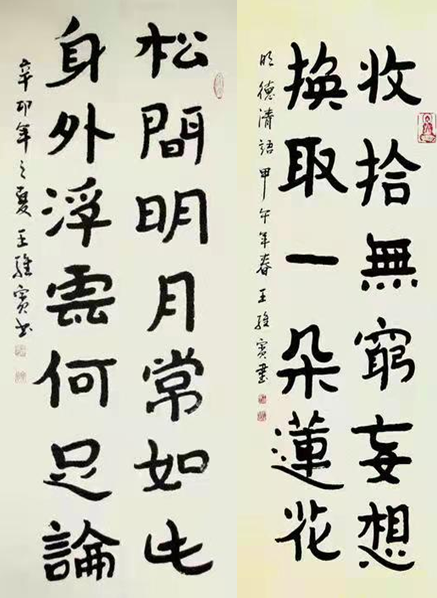 收拾無窮妄想
換取一朵蓮花
明德清語 甲午年春 王書
松間明月常如此
身外浮雲何足論
辛卯年之夏 王書